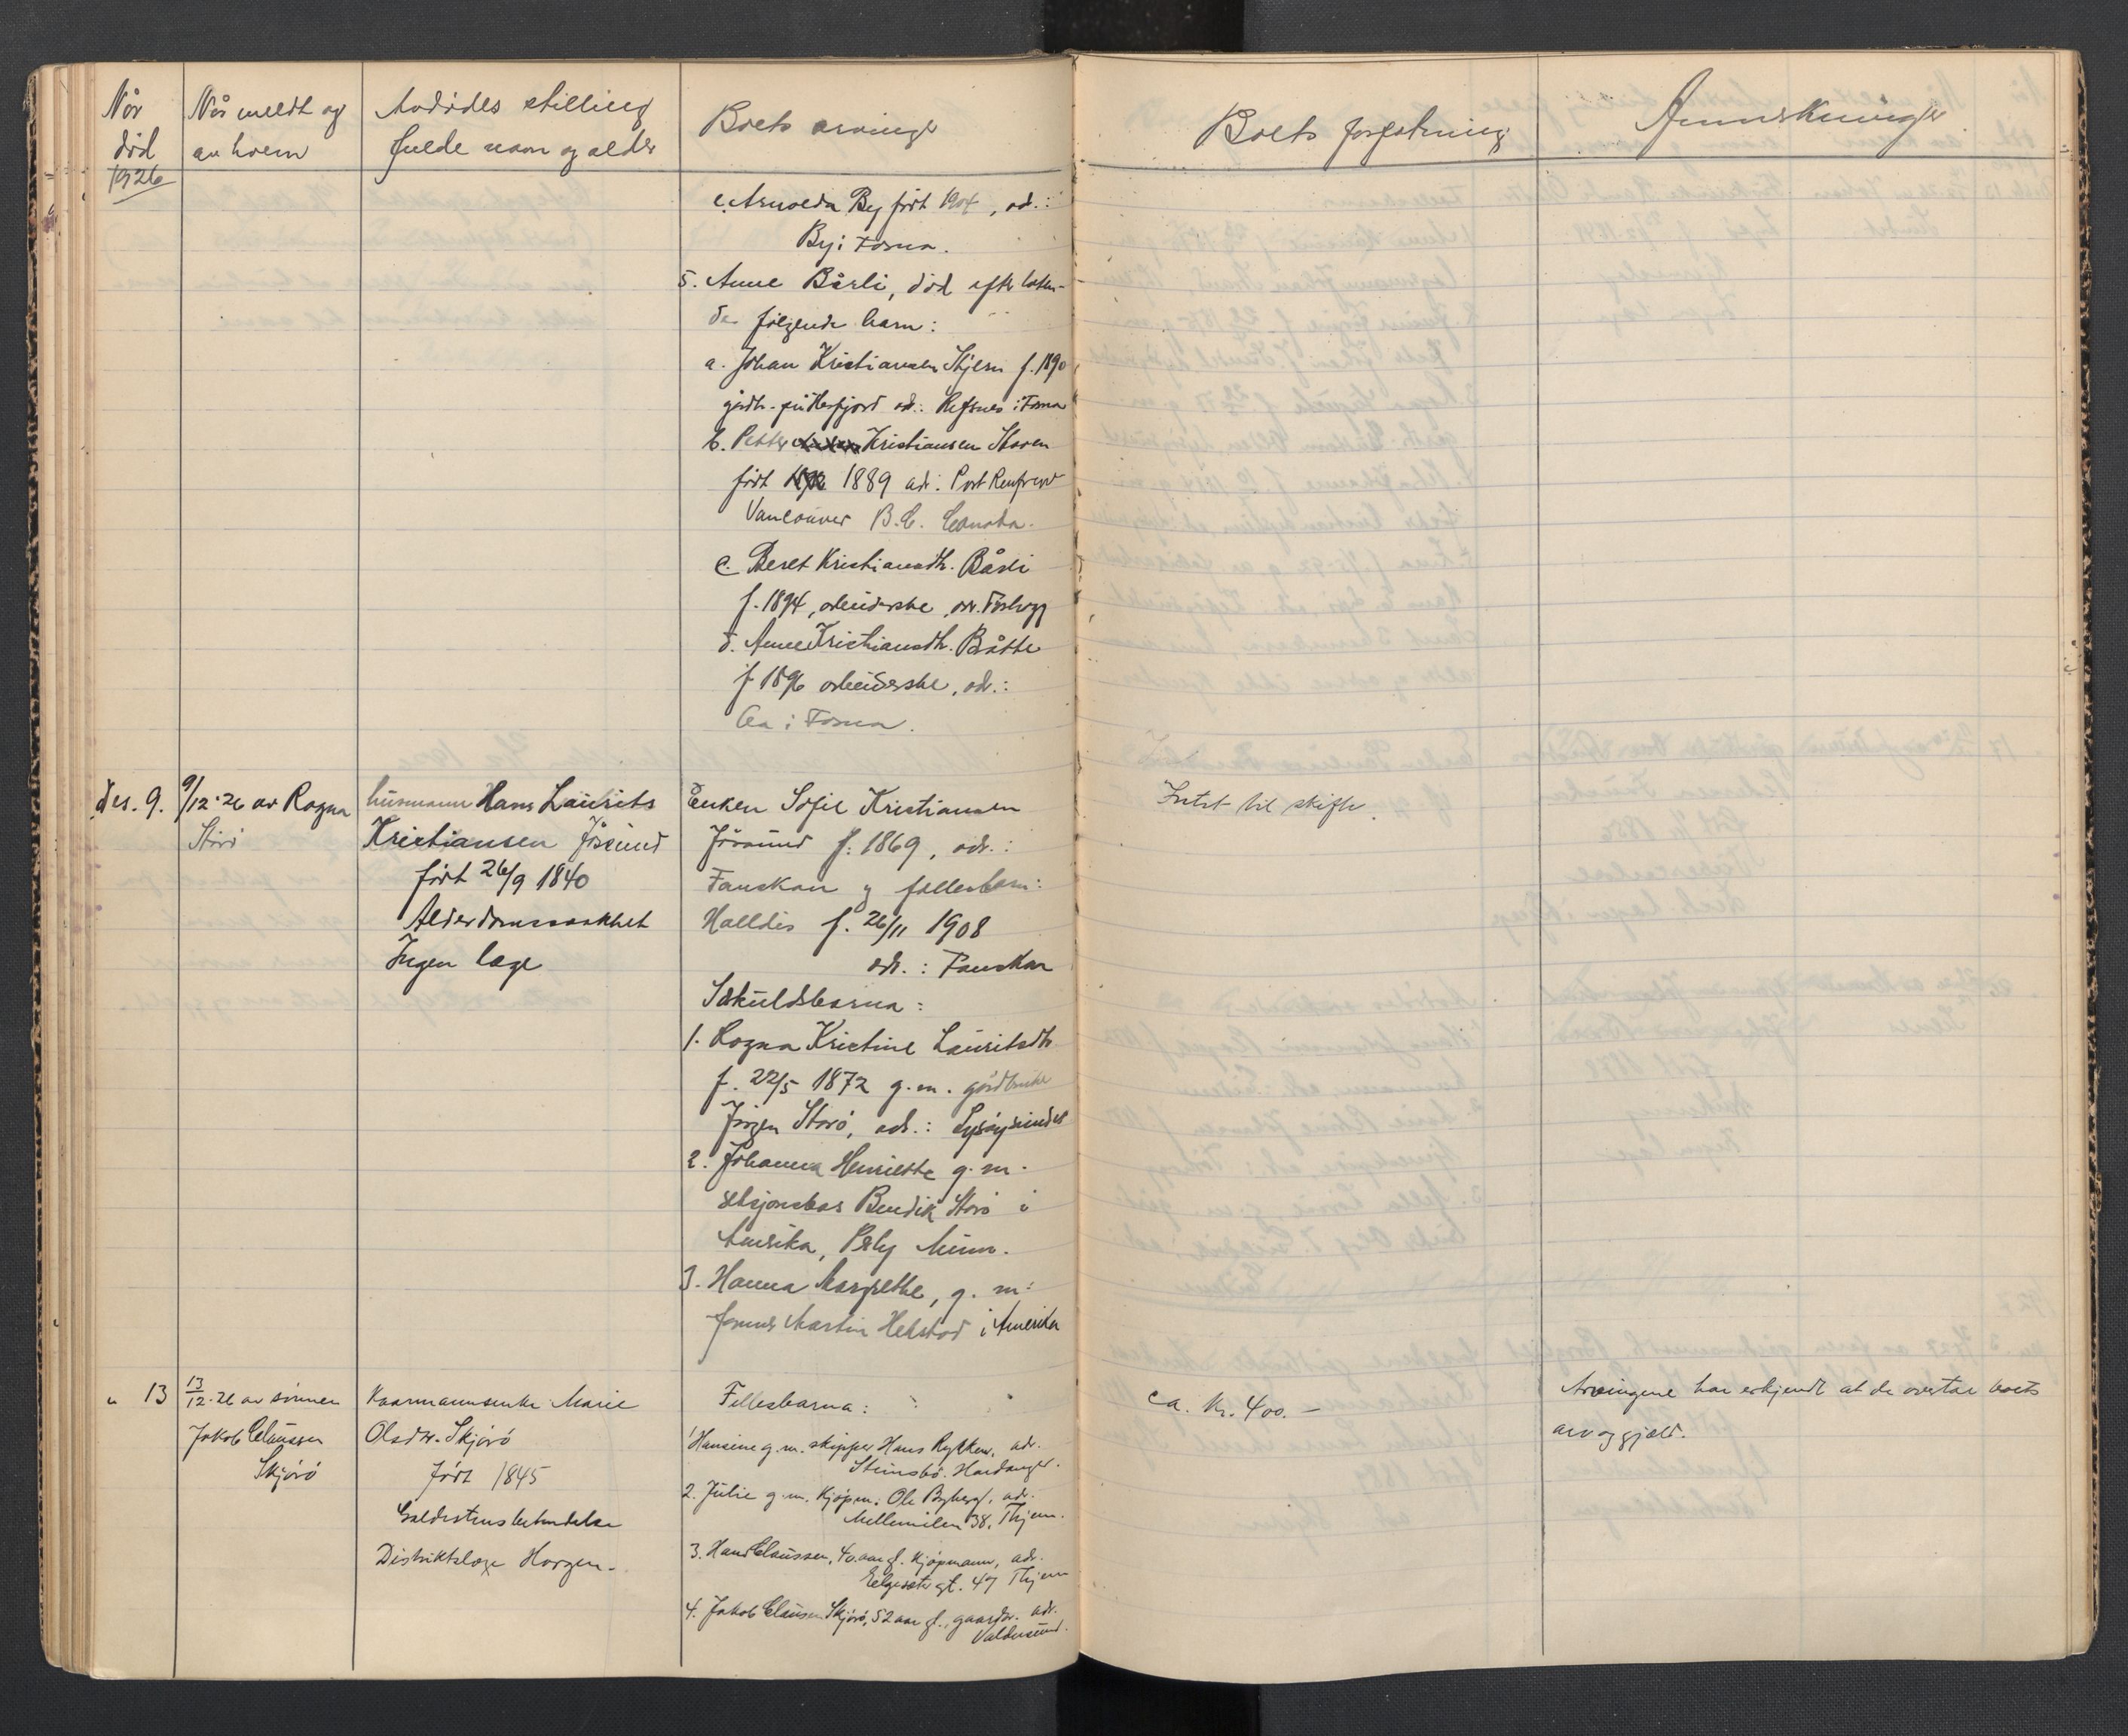 Når
död
1926
Når meldt og
av hvem
Avdödes stilling
fulde navn og alder
Boets arvinger
Boets forfatning
Anmerkninger
c. Arnolda By född 1904, adr.:
By i Fosna.
5. Anne Bårli, död efterlaten-
de følgende barn:
a. Johan Kristiansen Stjern f. 1890
gårdbr. på Herfjord adr.: Refsnes i Fosna
b. Petter Kristiansen Staven
född 1889 adr: Port Renfrew
Vancouver B.C. Canada.
c. Beret Kristiansdtr. Bårli
f. 1894, arbeiderske, adr.
d. Anne Kristiansdtr. Båtte
f 1896 arbeiderske, adr.:
Aa i Fosna.
des. 9.
9/12-26 av Ragna
Storö
husmann Hans Laurits
Kristiansen Jösund
född 26/9 1840
Alderdomssvakhet
Ingen læge
Enken Sofie Kristiansen
Jössund f: 1869, adr.:
Fanskar og fellesbarn:
Halldis f. 26/11 1908
adr.: Fanskar
Særkuldsbarna:
1. Ragna Kristine Lauritsdtr
f. 22/5 1872 g.m. gårdbruker
Jörgen Storö, adr.: Lysöysundet
2. Johanna Henriette g.m.
seksjonsbas Bendik Storö i
Amerika, Perly Minn.
3. Hanna Margrethe, g. m:
Martin Hekstad i Amerika
Intet til skifte.
" 13
13/12-26 av sönnen
Jakob Claussen
Skjörö
Kaarmannsenke Marie
Olsdtr. Skjörö
Född 1845
Galdestensbetendelse
Distriktslæge Horgen.
Fellesbarna:
1 Hansine g.m. skipper Hans Rykken, adr.
Steinstö. Hardanger.
2. Julie g.m. kjöpm. Ole Byberg, adr.
Mellemilen 38, Thjem.
3. Hans Claussen, 40 aar gl. kjöpmann, adr.
Elgesæter gt. 47 Thjem
4. Jakob Clausen Skjörö, 52 aar gl., gaardbr. adr.
Valdersund.
ca. kr. 400.–
Arvingene har erkjendt at de overtar boets
arv og gjæld.